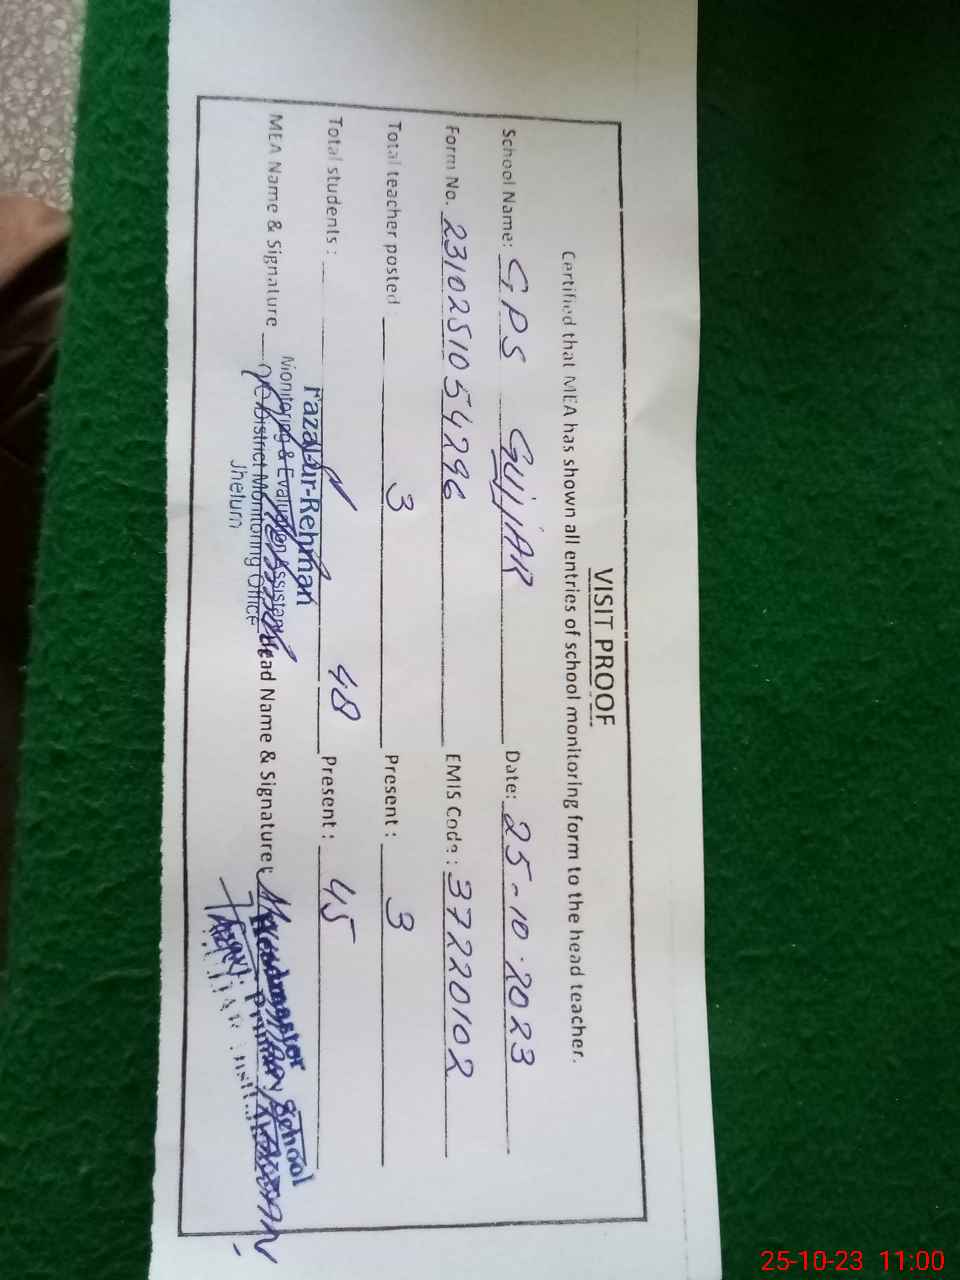 VISIT PROOF
Certified that MEA has shown all entries of school monitoring form to the head teacher.
School Name: GPS GUJJAR Date: 25-10-2023
Form No. 231025105 4296 EMIS Code: 37220102
Total teacher posted: 3 Present: 3
Total students: 48 Present: 45
Fazal-ur-Rehman
MEA Name & Signature Head Name & Signature:
Monitoring & Evaluation Assistant
District Monitoring Office
Jhelum
Headmaster
Primary School
25-10-23 11:00